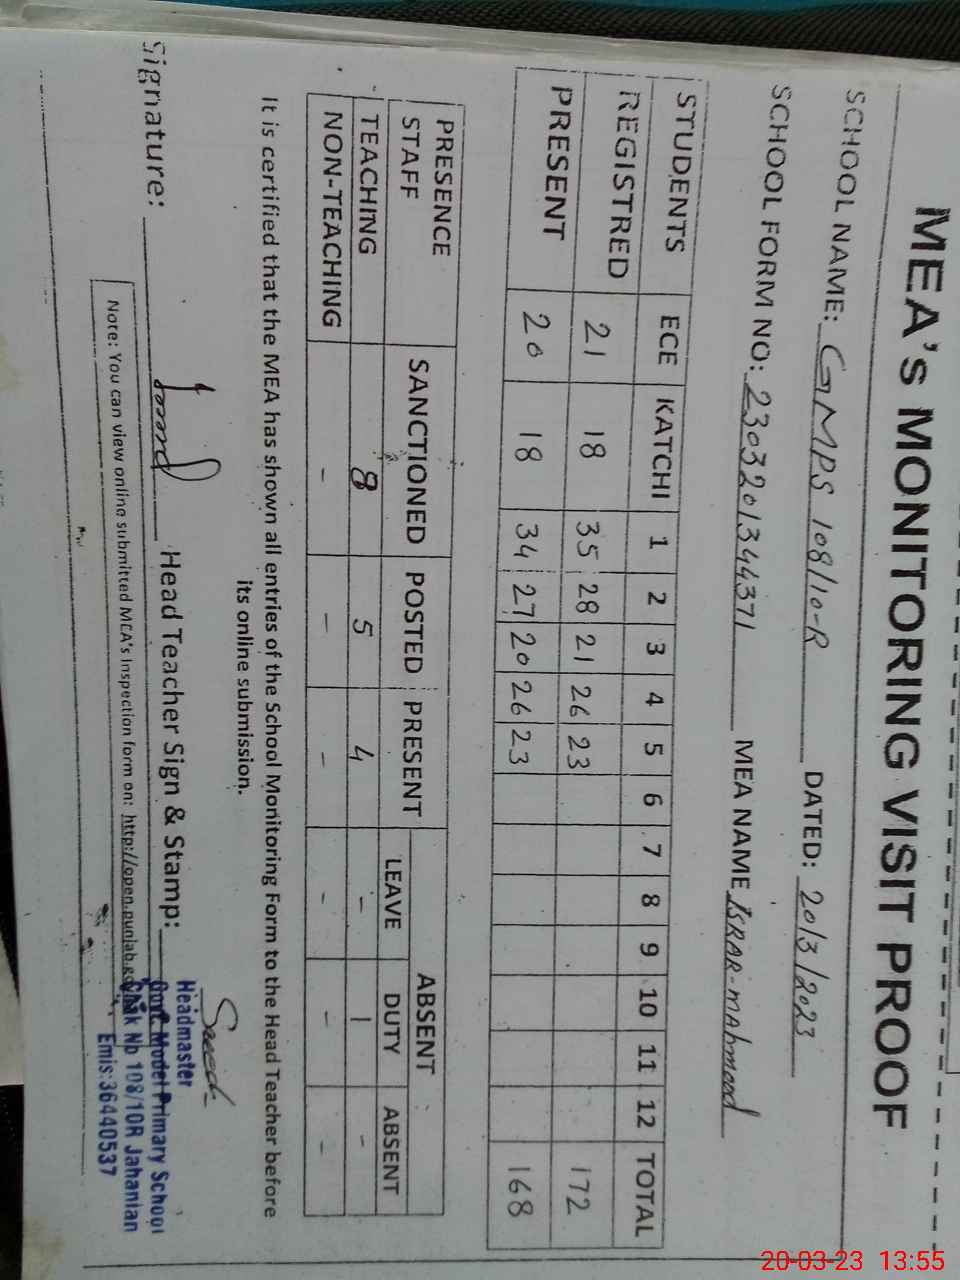 MEA's MONITORING VISIT PROOF
SCHOOL NAME: GMPS 108/10-R DATED: 20/3/2023
SCHOOL FORM NO: 2303201344371 MEA NAME ISRAR-mahmood
STUDENTS ECE KATCHI 1 2 3 4 5 6 7 8 9 10 11 12 TOTAL
REGISTRED 21 18 35 28 21 26 23 172
PRESENT 20 18 34 27 20 26 23 168
PRESENCE STAFF SANCTIONED POSTED PRESENT ABSENT
LEAVE DUTY ABSENT
TEACHING 8 5 4 - 1 -
NON-TEACHING - - - - - -
It is certified that the MEA has shown all entries of the School Monitoring Form to the Head Teacher before
its online submission.
Signature: Head Teacher Sign & Stamp:
Headmaster
Govt. Model Primary School
Chak No 108/10R Jahanian
Emis:36440537
Note: You can view online submitted MEA's Inspection form on: http://open.punjab.go
20-03-23 13:55